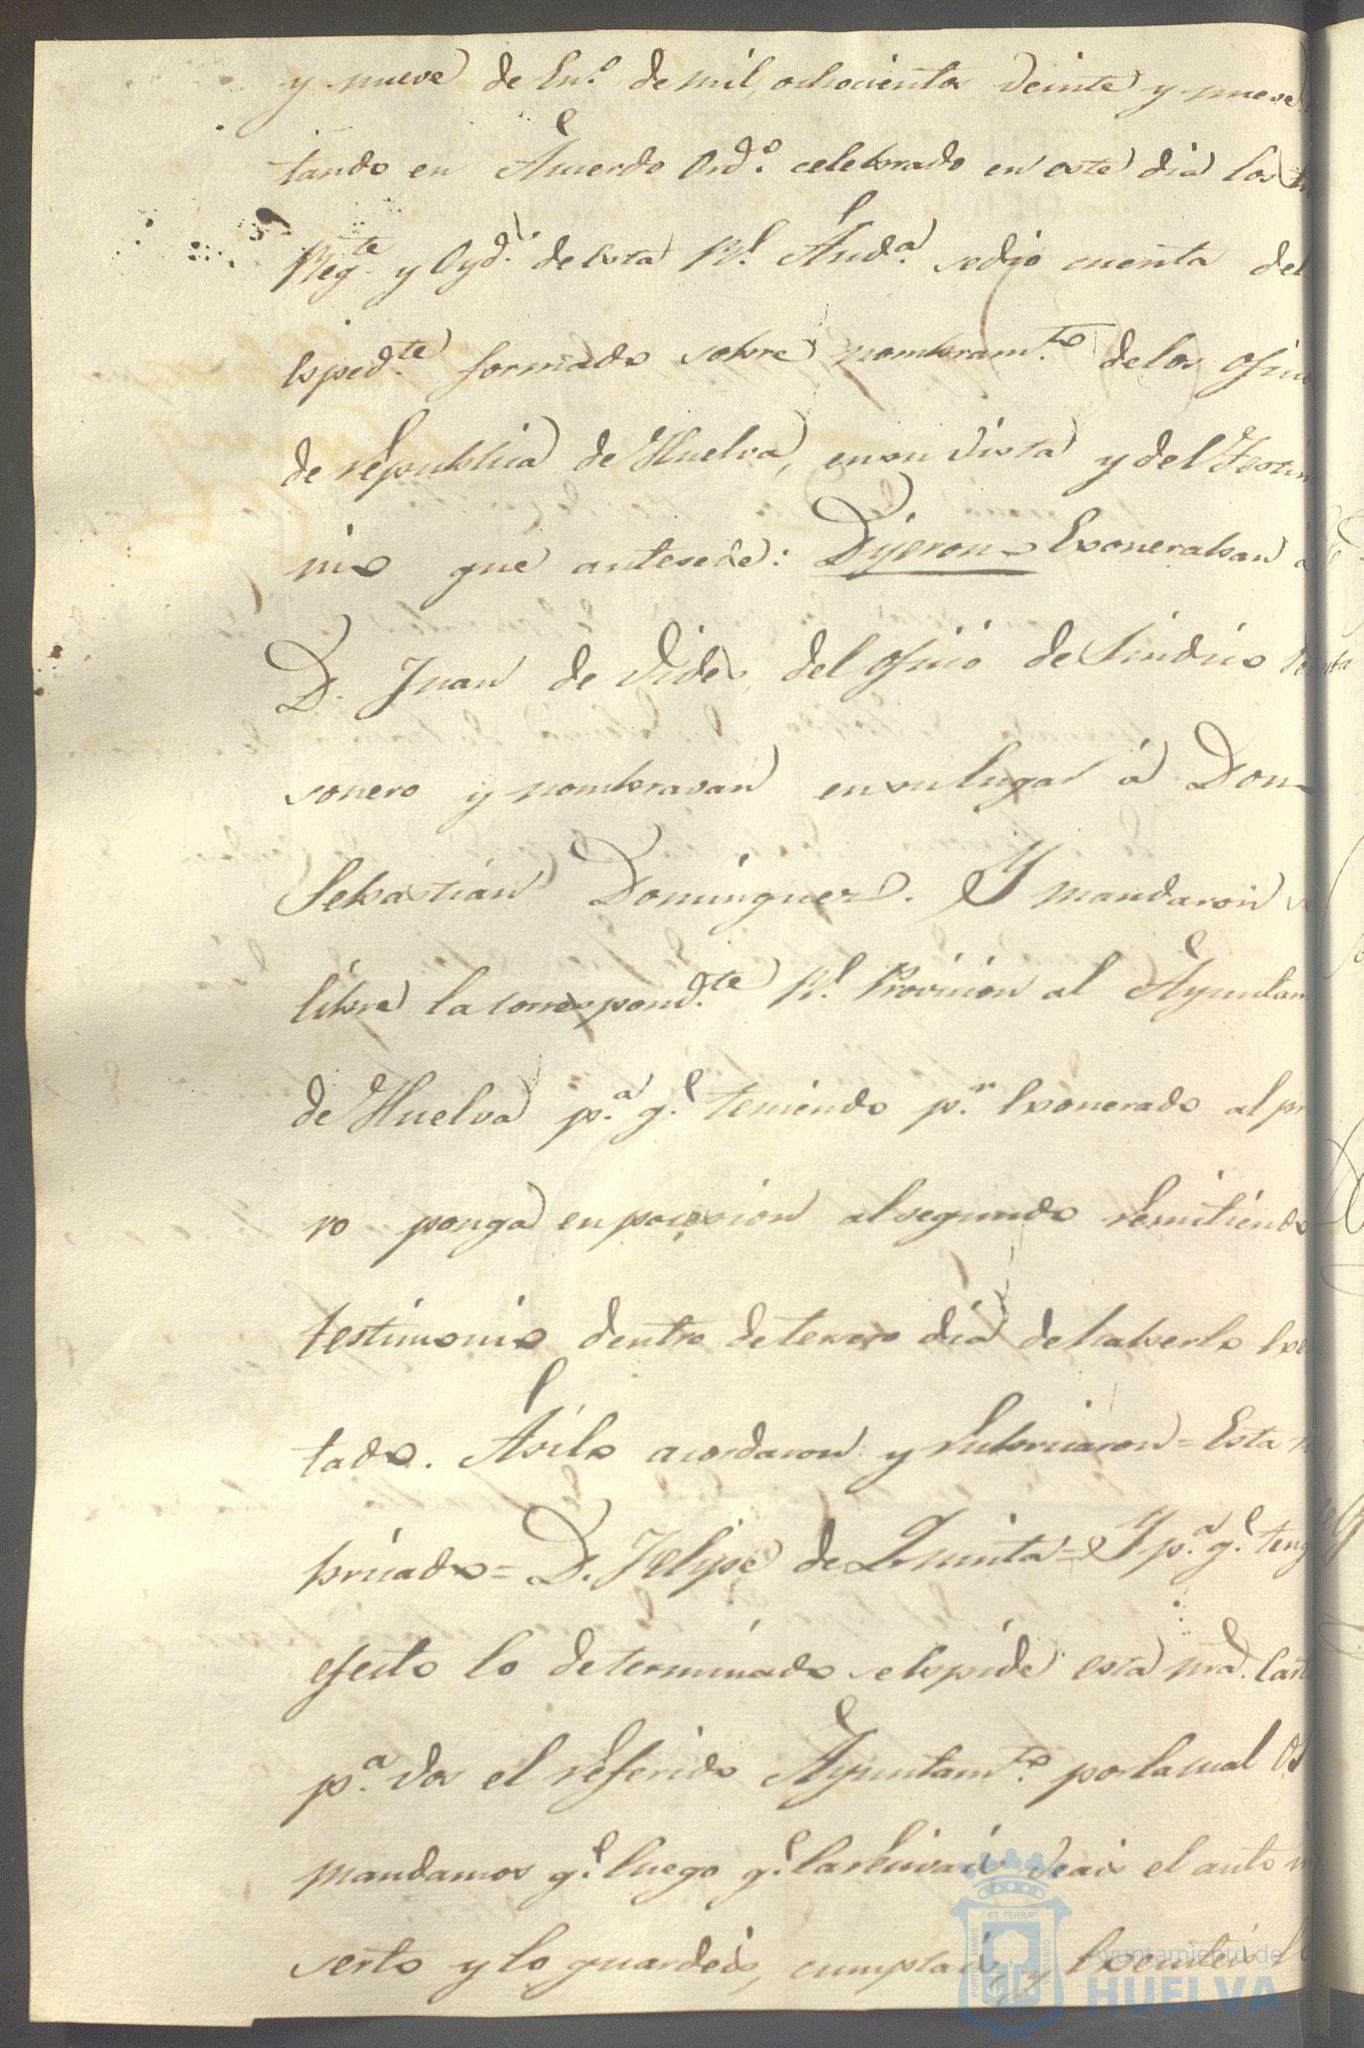 y nueve de En.º de mil, ochocientos veinte y nueve
tando en Acuerdo Ord.º celebrado en este dia los
Reg.te y Oyd.s de esta R.l Aud.a sedio cuenta del
Esped.te formado sobre nombram.to delos ofici
de republica de Huelva, ensu vista y del Testim
nio que antesede: Dijeron Exoneraban a
D. Juan de Vides, del oficio de Sindico Per
sonero y nombravan ensu lugar á Don
Sebastian Dominguez. Y mandaron se
libre la correspond.te R.l Provicion al Ayuntam
de Huelva p.a q.e teniendo p.r Exonerado al pri
ro ponga en pocesion al segundo remitiendo
testimonio dentro de tercero dia de haberlo Exe
tado. Asilo acordaron y rubricaron = Esta
bricado = D. Felipe de Quinta = Y p.a q.e teng
efecto lo determinado se Espide esta nra. Cart
p.a vos el referido Ayuntam.to por la cual Os
mandamos q.e luego q.e la recivais veais el auto in
serto y lo guardeis, cumplais, y Executeis
ET TERRAE
PORTUS MARIS
CUSTODIA
Ayuntamiento de
HUELVA